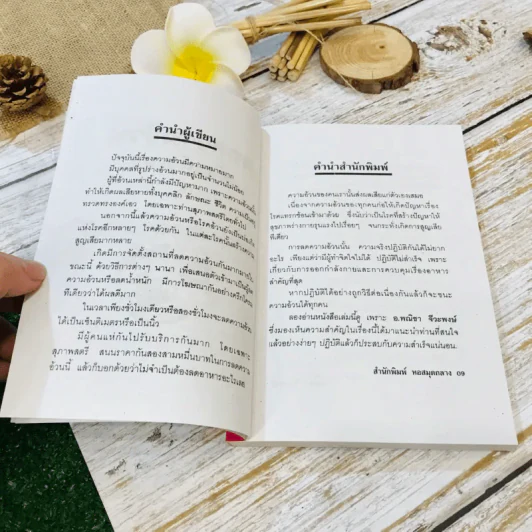 คำนำผู้เขียน
ปัจจุบันนี้เรื่องความอ้วนมีความหมายมาก
มีบุคคลที่รูปร่างอ้วนมากอยู่เป็นจำนวนไม่น้อย
ผู้ที่อ้วนเหล่านี้กำลังมีปัญหามาก เพราะความอ้วน
ทำให้เกิดผลเสียหายทั้งบุคลิก ลักษณะ ชีวิต ความเป็นอยู่
ทรวดทรงองค์เอว โดยเฉพาะท่านสุภาพสตรีโดยทั่วไป
นอกจากนี้แล้วความอ้วนหรือโรคอ้วนยังเป็นบ่อ
แห่งโรคอีกหลายๆ โรคด้วยกัน ในแต่ละโรคนั้นสร้างความ
สูญเสียมากมาย
เกิดมีการจัดตั้งสถานที่ลดความอ้วนกันมากมายใน
ขณะนี้ ด้วยวิธีการต่างๆ นานา เพื่อเสนอตัวเข้ามาเป็นผู้ลด
ความอ้วนหรือลดน้ำหนัก มีการโฆษณากันอย่างครึกโครม
ทีเดียวว่าได้ผลดีมาก
ในเวลาเพียงชั่วโมงเดียวหรือสองชั่วโมงจะลดความอ้วน
ได้เป็นเซ็นติเมตรหรือเป็นนิ้ว
มีผู้คนแห่กันไปรับบริการกันมาก โดยเฉพาะ
สุภาพสตรี สนนราคากันสองสามหมื่นบาทในการลดความ
อ้วนนี้ แล้วก็บอกด้วยว่าไม่จำเป็นต้องลดอาหารอะไรเลย
คำนำสำนักพิมพ์
ความอ้วนของคนเรานั้นส่งผลเสียแก่ตัวเองเสมอ
เนื่องจากความอ้วนของทุกคนก่อให้เกิดปัญหาเรื่อง
โรคแทรกซ้อนเข้ามาด้วย ซึ่งนับว่าเป็นโรคที่สร้างปัญหาให้
สุขภาพร่างกายรุนแรงไปเรื่อยๆ จนกระทั่งเกิดการสูญเสีย
ทีเดียว
การลดความอ้วนนั้น ความจริงปฏิบัติกันได้ไม่ยาก
อะไร เพียงแต่ว่ามีผู้ทำจิตใจไม่ได้ ปฏิบัติไม่สำเร็จ เพราะ
เกี่ยวกับการออกกำลังกายและการควบคุมเรื่องอาหาร
สำคัญที่สุด
หากปฏิบัติได้อย่างถูกวิธีต่อเนื่องกันแล้วก็จะชนะ
ความอ้วนได้ทุกคน
ลองอ่านหนังสือเล่มนี้ดู เพราะ อ.พณิชา จีวะพงษ์
ซึ่งมองเห็นความสำคัญในเรื่องนี้ได้มาแนะนำท่านที่สนใจ
แล้วอย่างง่ายๆ ปฏิบัติแล้วก็ประสบกับความสำเร็จแน่นอน.
สำนักพิมพ์ หอสมุดกลาง 09